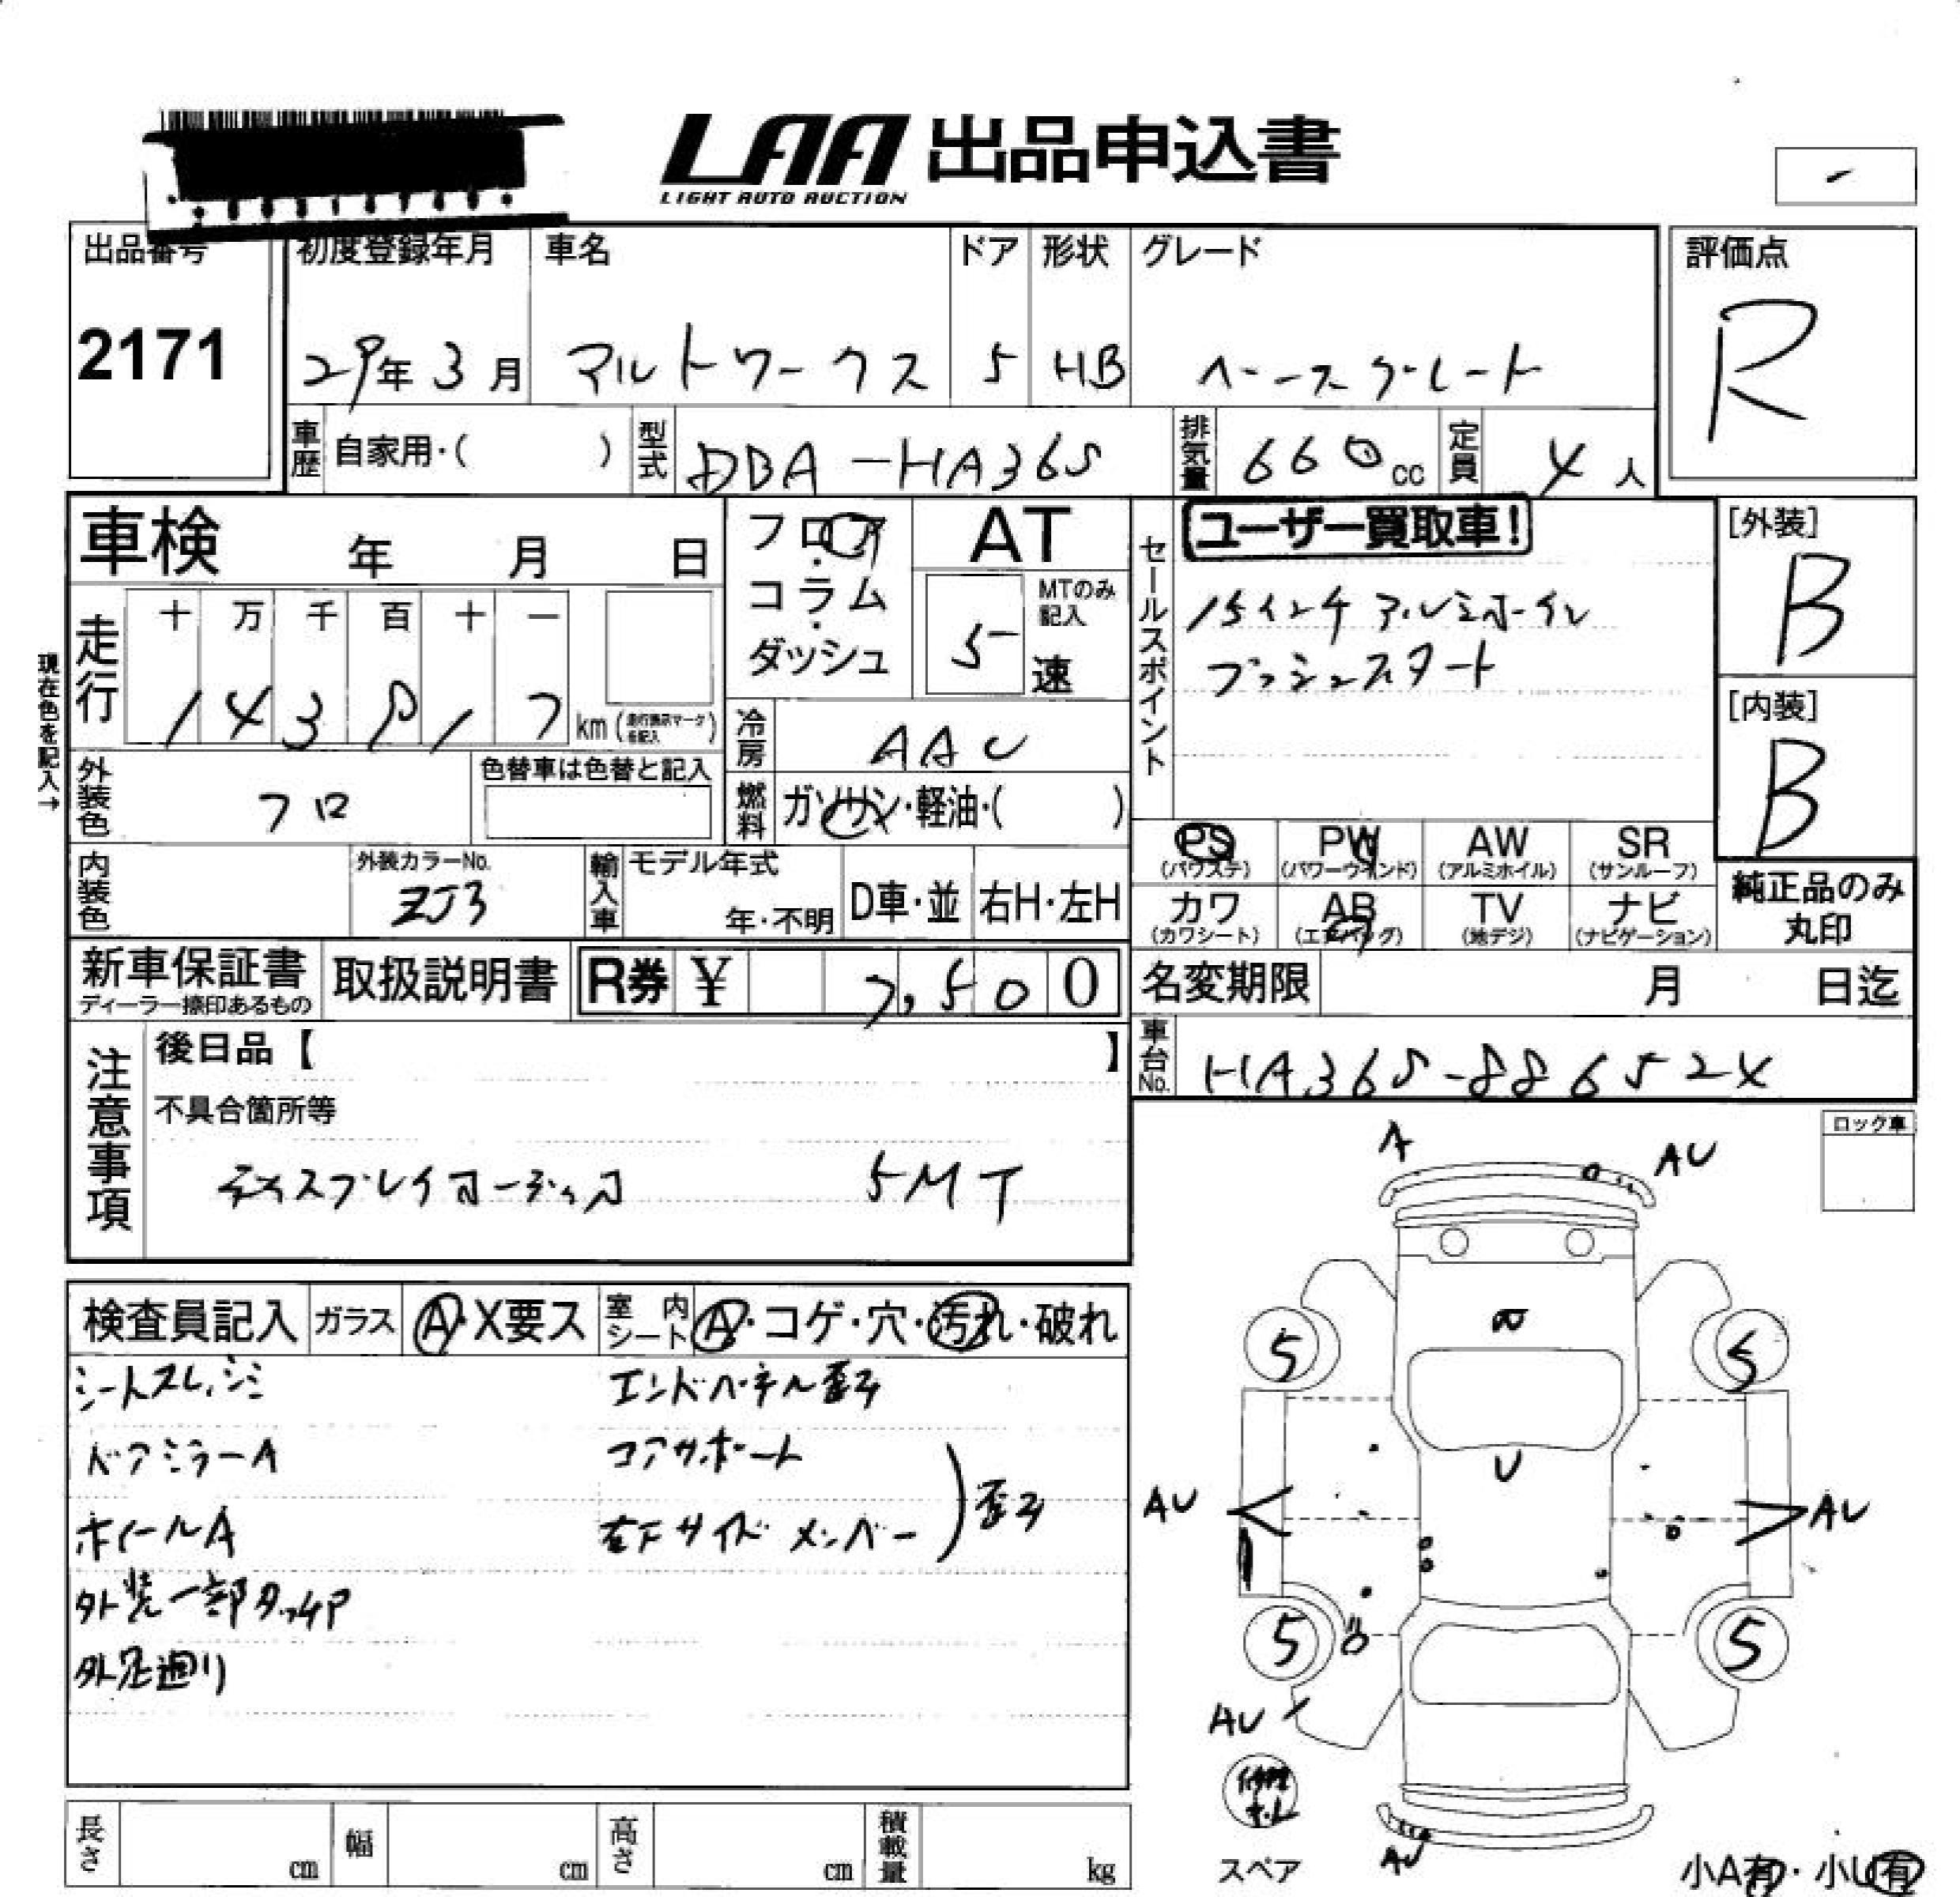 LAA 出品申込書
LIGHT AUTO AUCTION
出品番号 初度登録年月 車名 ドア 形状 グレード 評価点
2171 29年3月 アルトワークス 5 HB ベースグレード R
車歴 自家用・( ) 型式 DBA-HA36S 排気量 660cc 定員 4人
車検 年 月 日
フロア・コラム・ダッシュ
AT
MTのみ記入
5速
セールスポイント
ユーザー買取車!
15インチアルミホイル
プッシュスタート
[外装]
B
[内装]
B
現在色を記入→
走行 十 万 千 百 十 一
143817 km
冷房 AAC
外装色 クロ 色替車は色替と記入
燃料 ガソリン・軽油・( )
PS (パワステ) PW (パワーウインド) AW (アルミホイル) SR (サンルーフ)
カワ (カワシート) AB (エアバッグ) TV (地デジ) ナビ (ナビゲーション)
純正品のみ丸印
内装色 外装カラーNo. ZJ3 輸入車 モデル年式 年・不明 D車・並 右H・左H
新車保証書 ディーラー捺印あるもの 取扱説明書 R券 ¥ 7,500
名変期限 月 日迄
車台No. HA36S-886524
注意事項
後日品【 】
不具合箇所等
ディスプレイオーディオ 5MT
ロック車
検査員記入 ガラス A・X要ス 室内シート A・コゲ・穴・汚れ・破れ
シートスレ,シミ エンドパネル歪み
ドアミラーA コアサポート
ホイールA 右下サイドメンバー ) 歪み
外装一部タッチP
外足廻り
A
AU
5
5
U
AU
AU
5
5
AU
修理キット
スペア
AU
小A有・小U有
長さ cm 幅 cm 高さ cm 積載量 kg